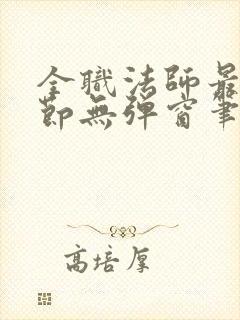 全職法師最
節無彈窗筆
高培厚